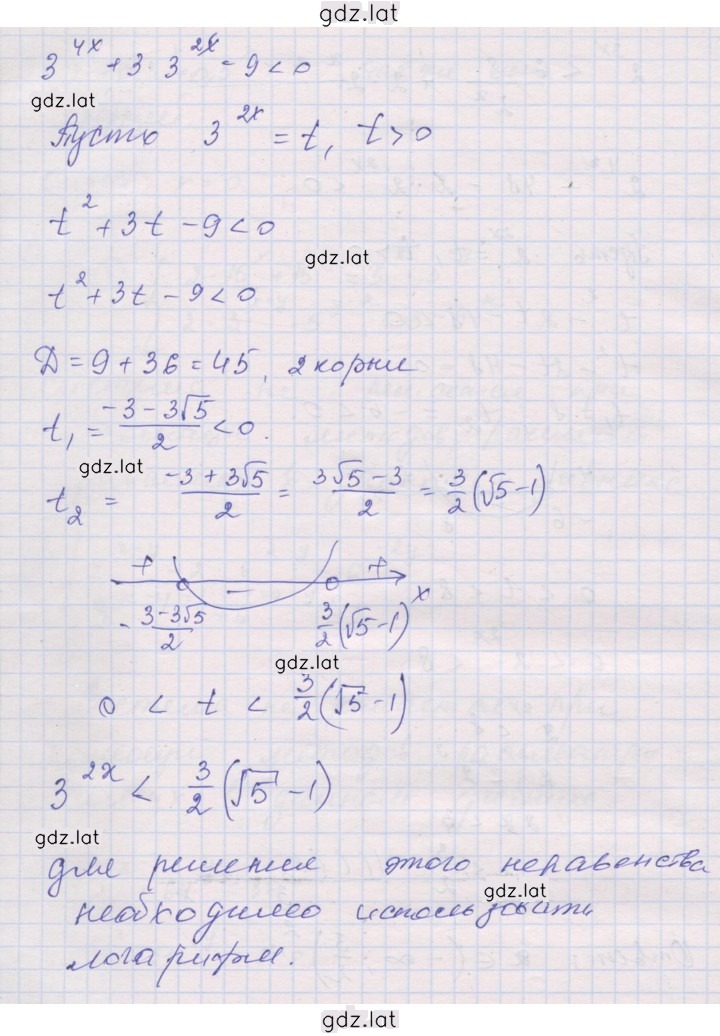 gdz.lat
3^{4x} + 3 · 3^{2x} - 9 < 0
gdz.lat
Пусть 3^{2x} = t, t > 0
t^2 + 3t - 9 < 0
gdz.lat
t^2 + 3t - 9 < 0
D = 9 + 36 = 45, 2 корни
t_1 = \frac{-3 - 3√5}{2} < 0.
gdz.lat
t_2 = \frac{-3 + 3√5}{2} = \frac{3√5 - 3}{2} = \frac{3}{2}(√5 - 1)
+ − +
-\frac{3 - 3√5}{2} \frac{3}{2}(√5 - 1) x
gdz.lat
0 < t < \frac{3}{2}(√5 - 1)
3^{2x} < \frac{3}{2}(√5 - 1)
gdz.lat
для решения этого неравенства
gdz.lat
необходимо использовать
логарифм.
gdz.lat